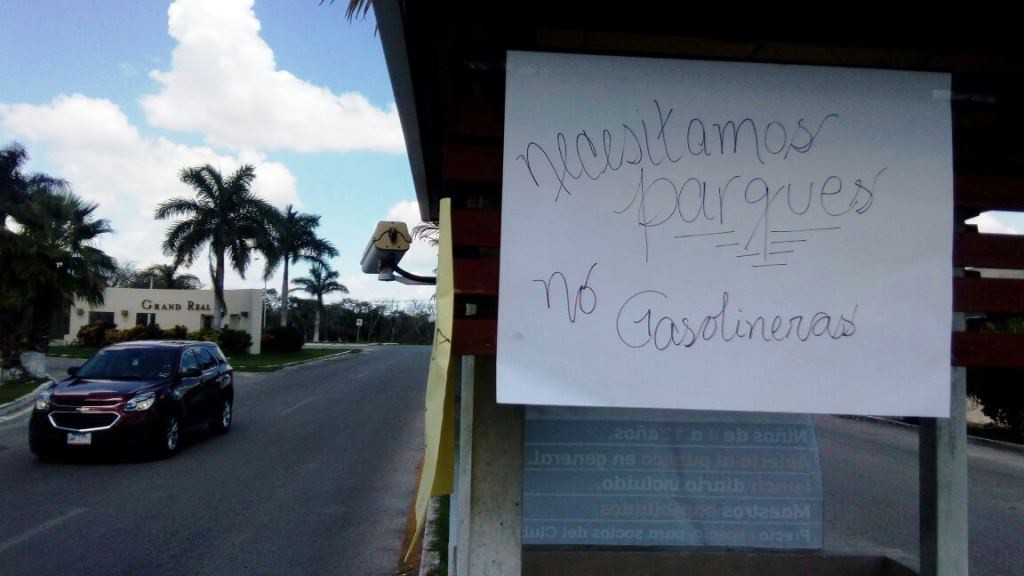 GRAND REAL
necesitamos
parques
no
Gasolineras
Niños de 4 a 12 años.
Abierto al público en general.
Lunch diario incluido.
Maestros capacitados.
Precio especial para socios del Club